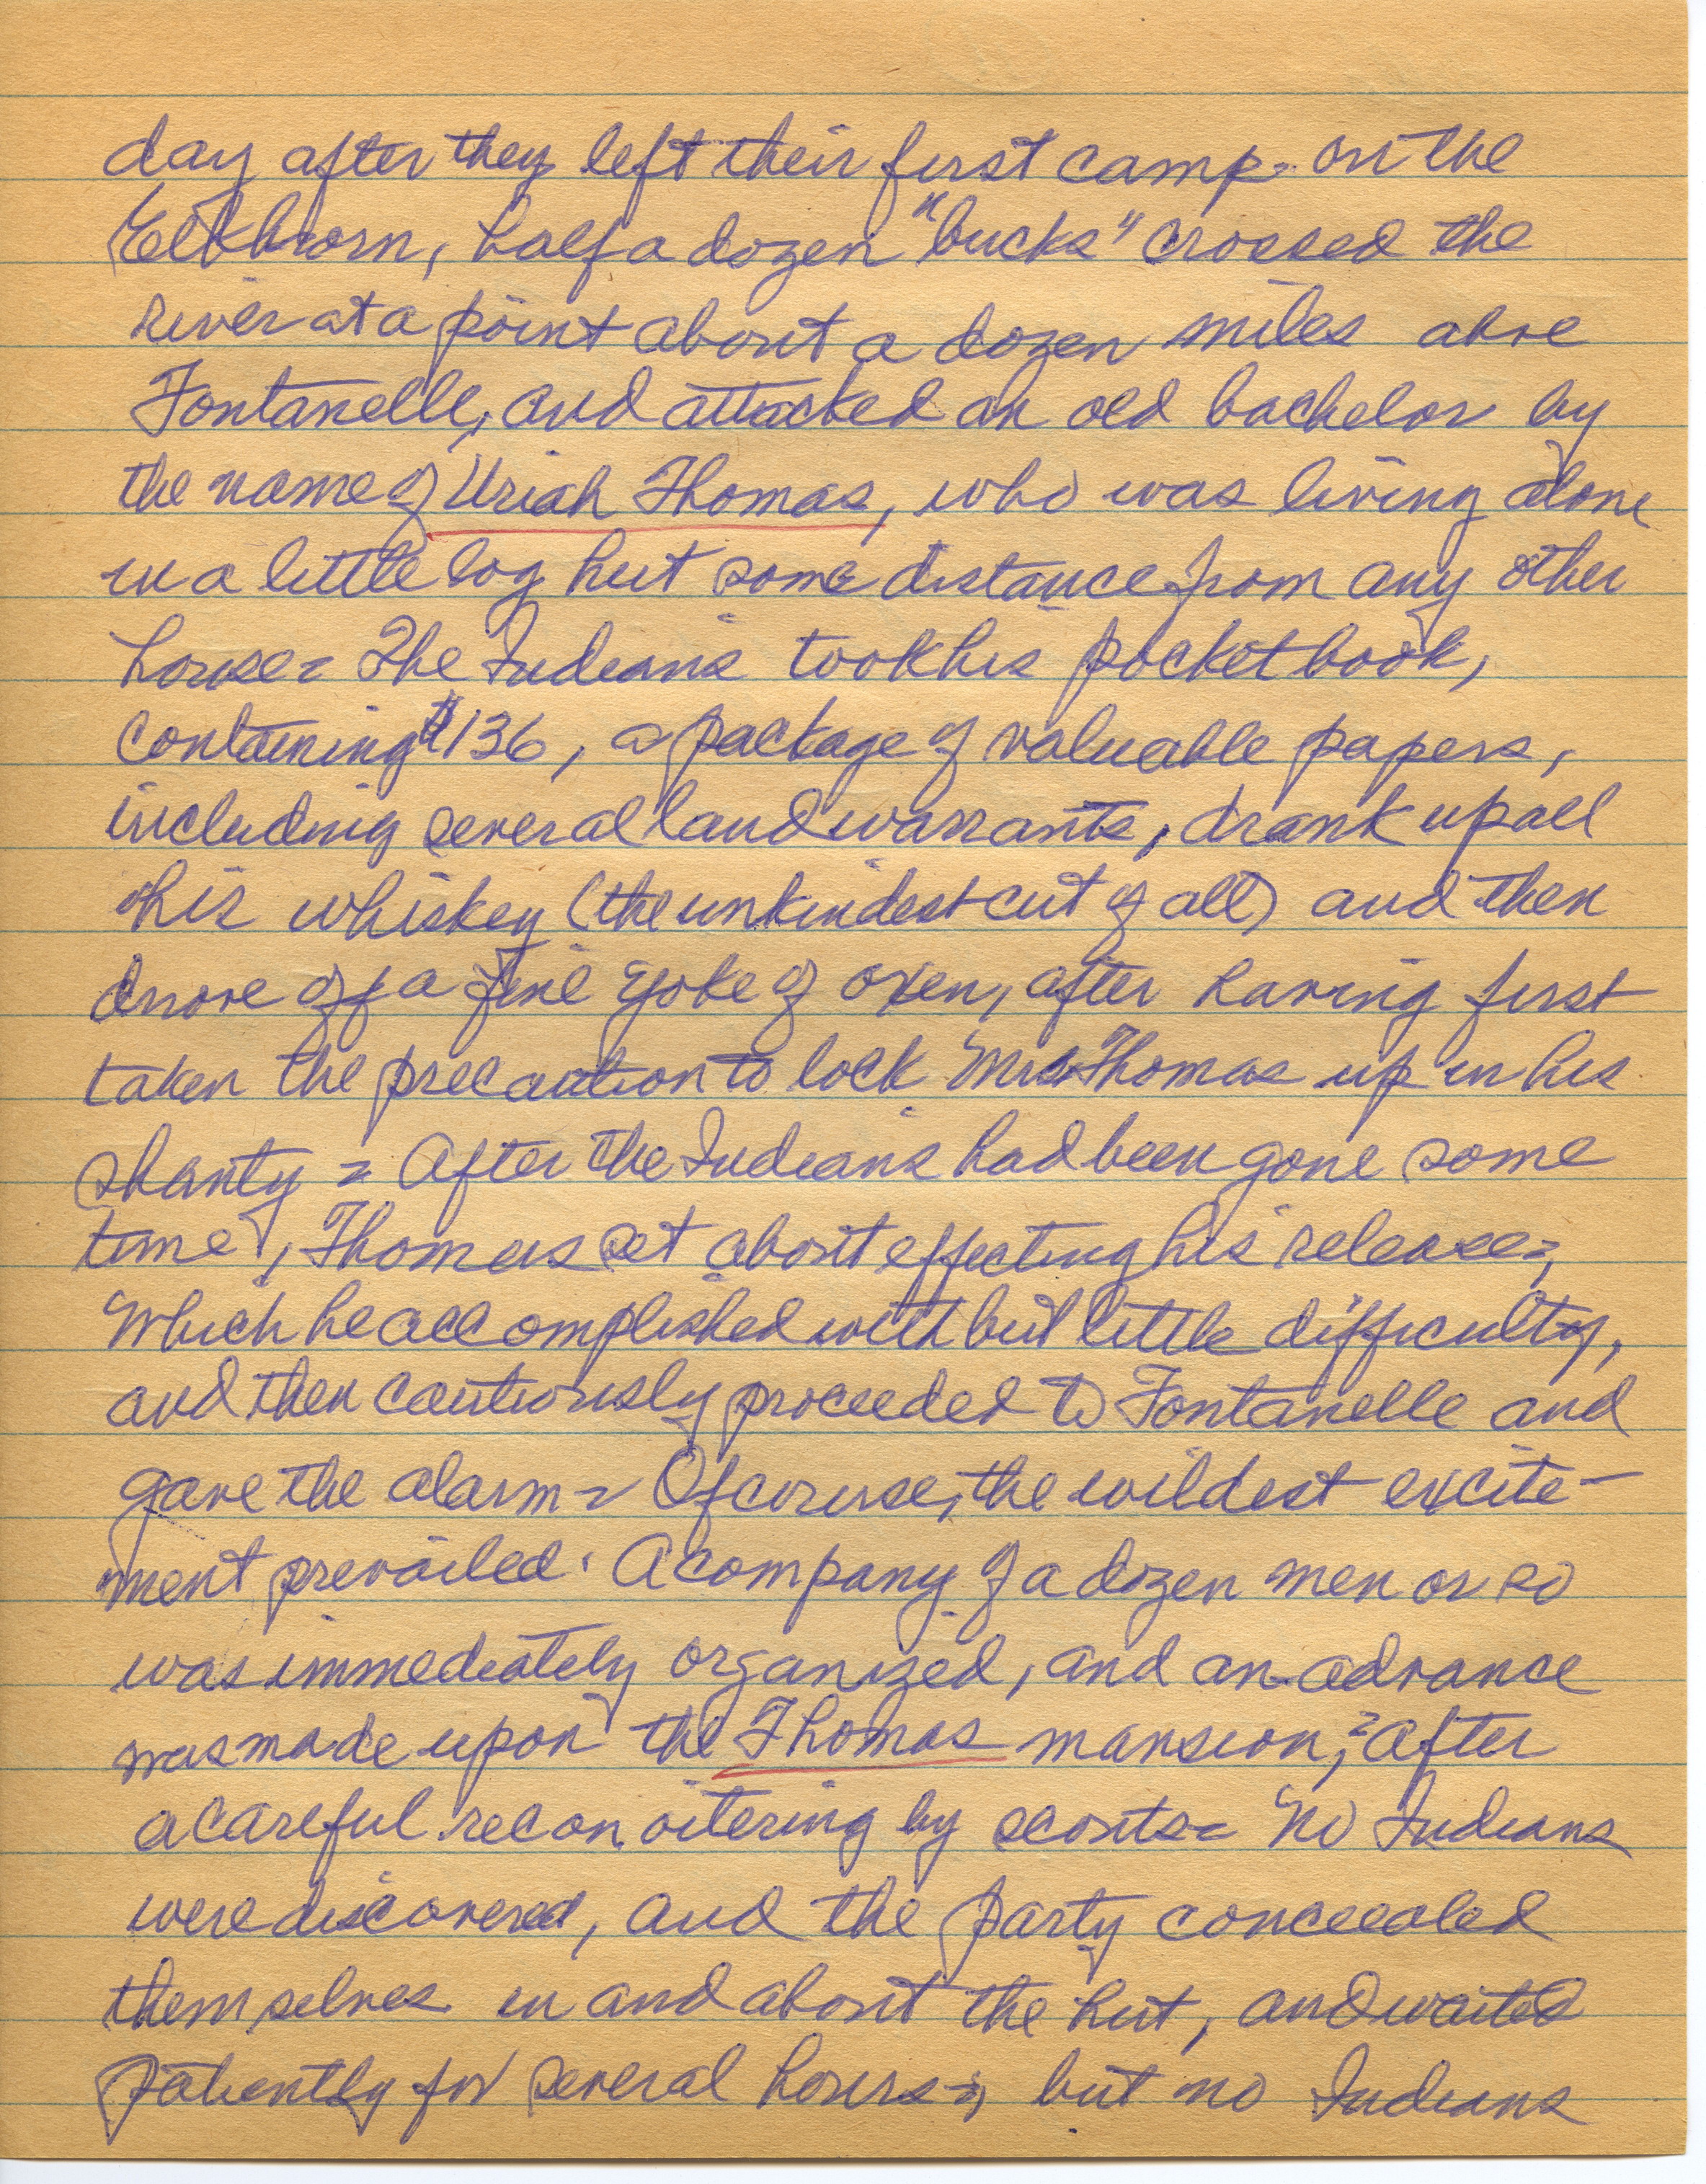 day after they left their first camp on the
Elkhorn, half a dozen "bucks" crossed the
river at a point about a dozen miles above
Fontanelle, and attacked an old bachelor by
the name of Uriah Thomas, who was living alone
in a little log hut some distance from any other
house = The Indians took his pocket book,
containing $136, a package of valuable papers,
including several land warrants, drank up all
his whiskey (the unkindest cut of all) and then
drove off a fine yoke of oxen, after having first
taken the precaution to lock Thomas up in his
shanty = After the Indians had been gone some
time, Thomas set about effecting his release,
Which he accomplished with but little difficulty,
and then cautiously proceeded to Fontanelle and
gave the alarm = Of course, the wildest excite-
ment prevailed. A company of a dozen men or so
was immediately organized, and an advance
was made upon the Thomas mansion, after
a careful reconoitering by scouts = No Indians
were discovered, and the party concealed
themselves in and about the hut, and waited
patiently for several hours, but no Indians